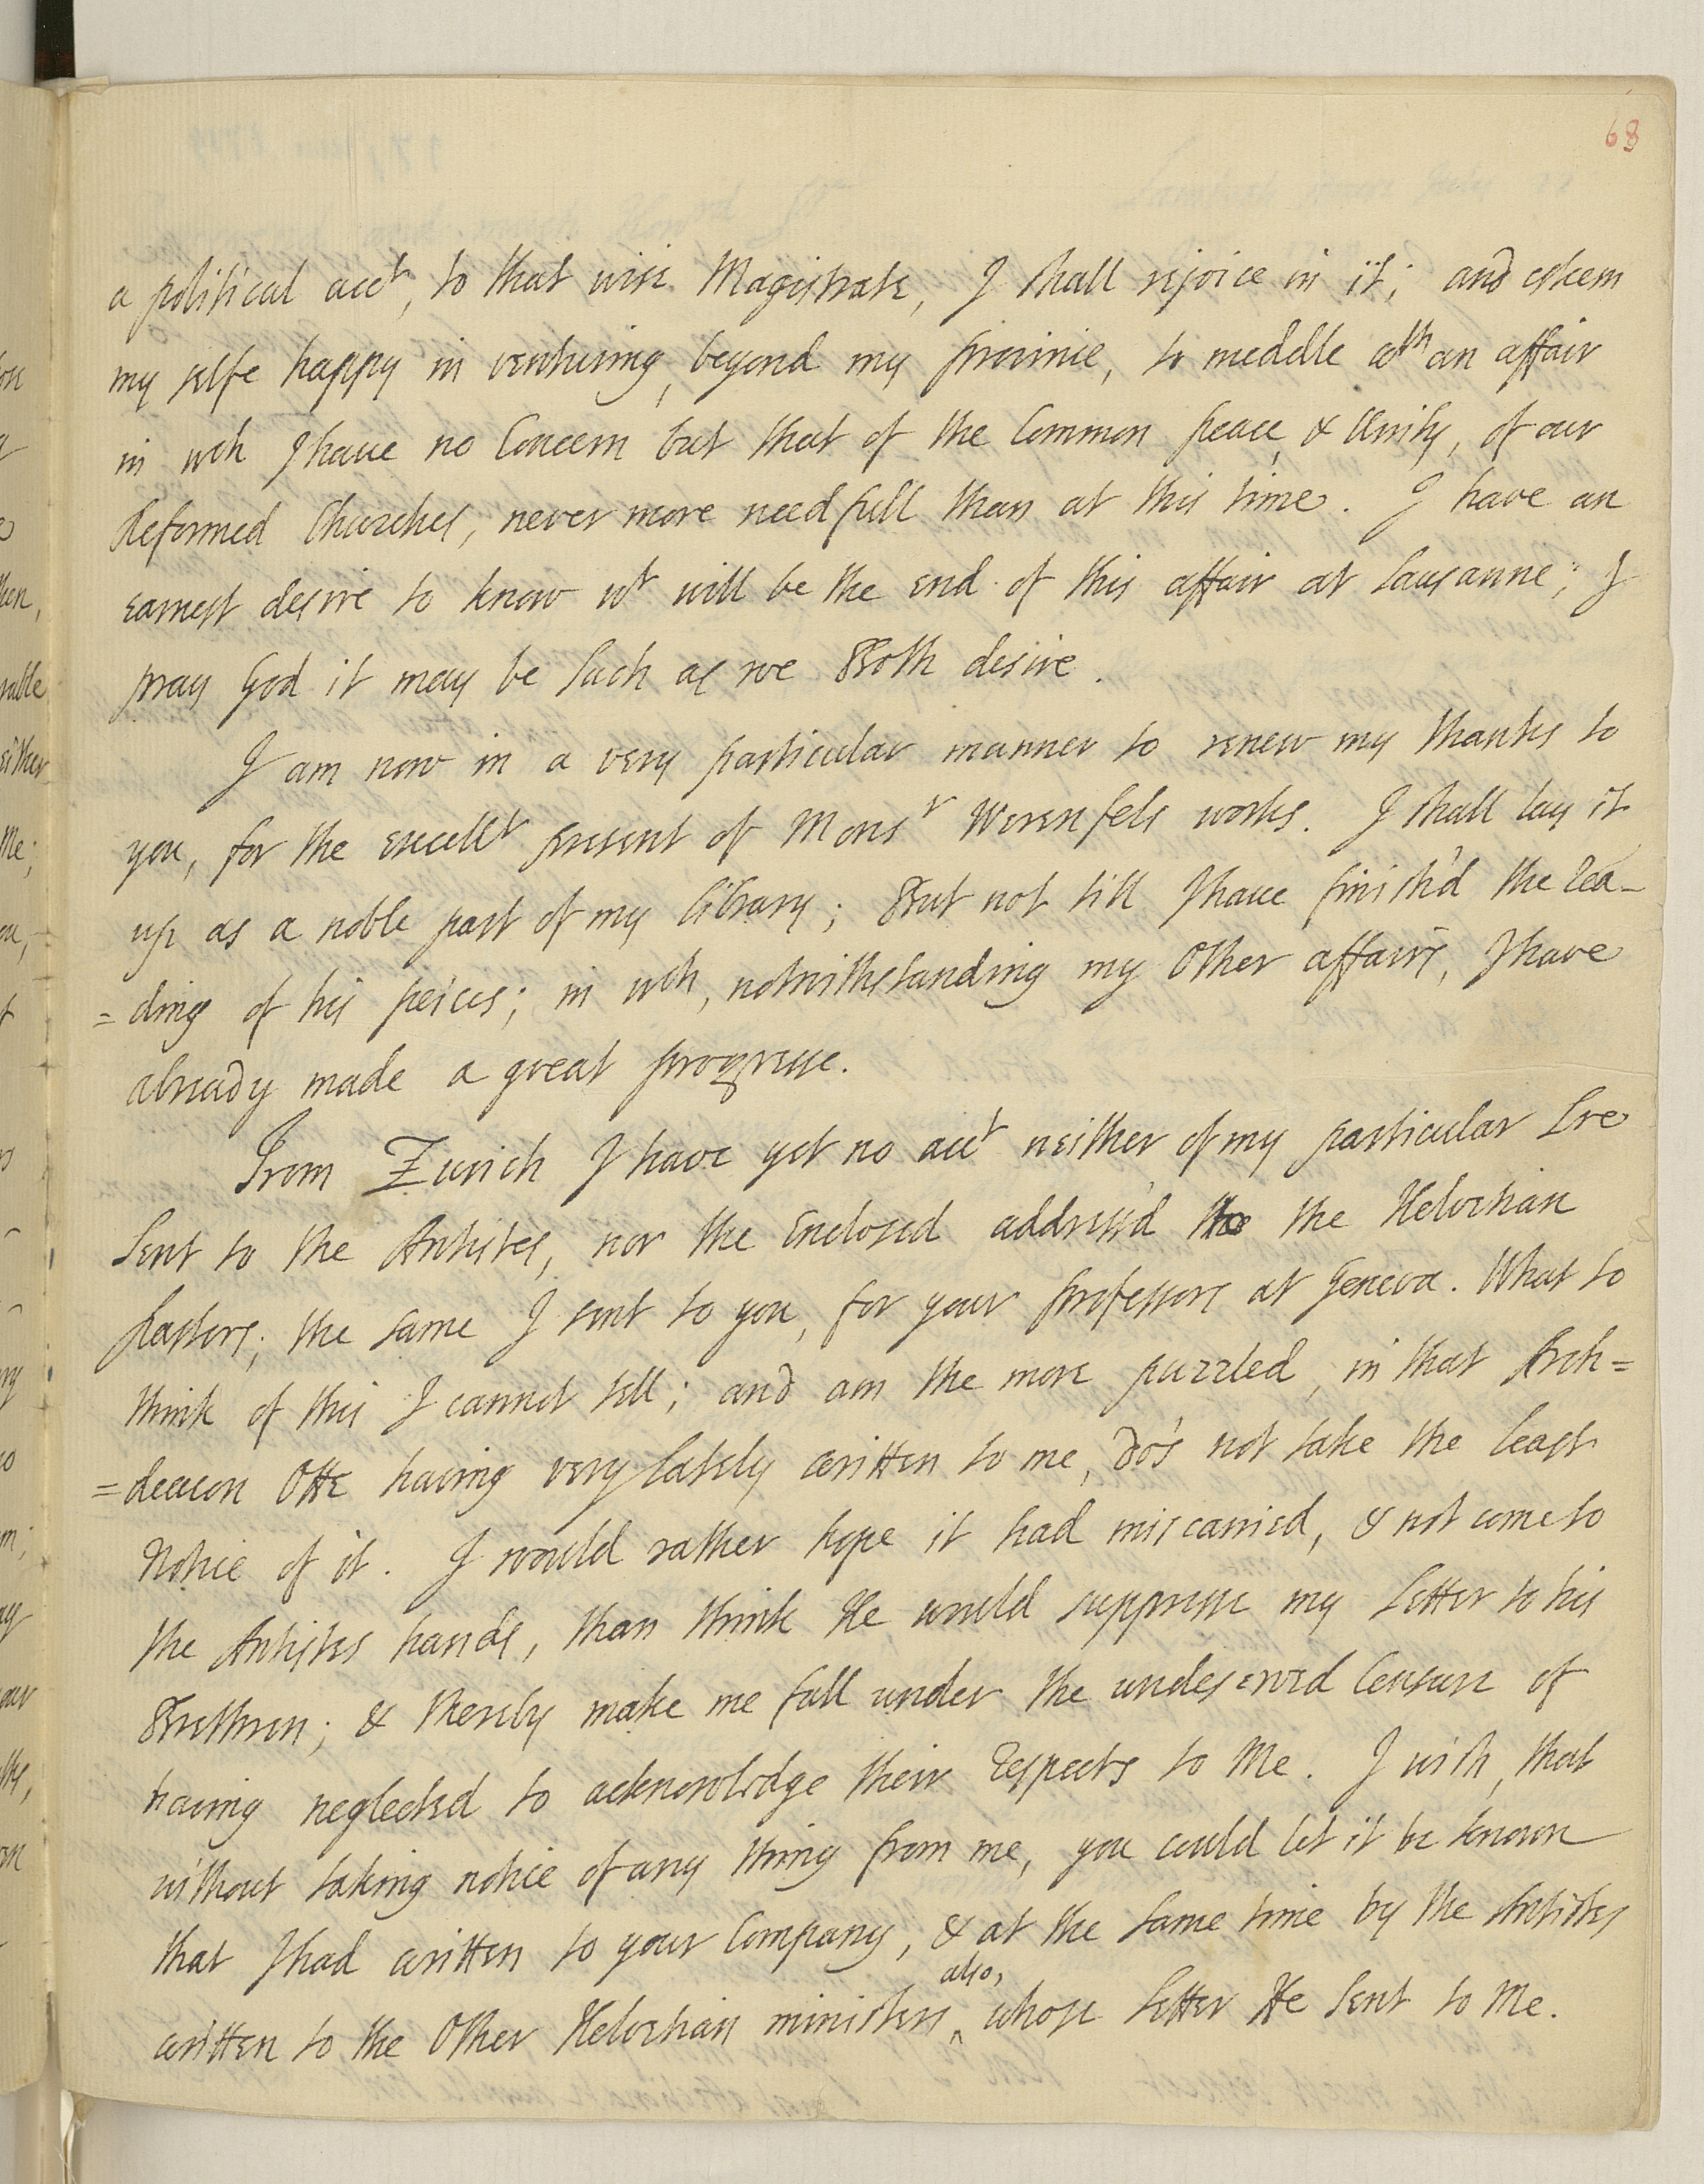 68
a political acct, to that wise Magistrate, I shall rejoice in it; and esteem
my selfe happy in venturing, beyond my province, to meddle wth an affair
in wch I haue no Concern but that of the Common peace, & Unity, of our
Reformed Churches, never more needfull than at this time. I have an
earnest desire to know wt will be the end of this affair at Lausanne; I
pray God it may be such as we Both desire.
I am now in a very particular manner to renew my thanks to
you, for the excellt present of Monsr Werenfels works. I shall lay it
up as a noble part of my library; But not till I haue finish'd the rea-
=ding of his peices; in wch, notwithstanding my Other affairs, I have
already made a great progresse.
From Zurich I have yet no acct neither of my particular Lre
sent to the Antistes, nor the Enclosed address'd to the Helvetian
Pastors; the same I sent to you, for your professors at Geneva. What to
think of this I cannot tell; and am the more puzzled, in that Arch=
=deacon Otte having very lately written to me, do's not take the least
Notice of it. I would rather hope it had miscarried, & not come to
the Antistes hands, than think He would suppresse my Letter to his
Brethren; & thereby make me fall under the undeserved Censure of
having neglected to acknowledge their Respects to Me. I wish, that
without taking notice of any thing from me, you could let it be known
that I had written to your Company, & at the same time by the Antistes
written to the Other Helvetian ministers also, whose Letter He sent to Me.